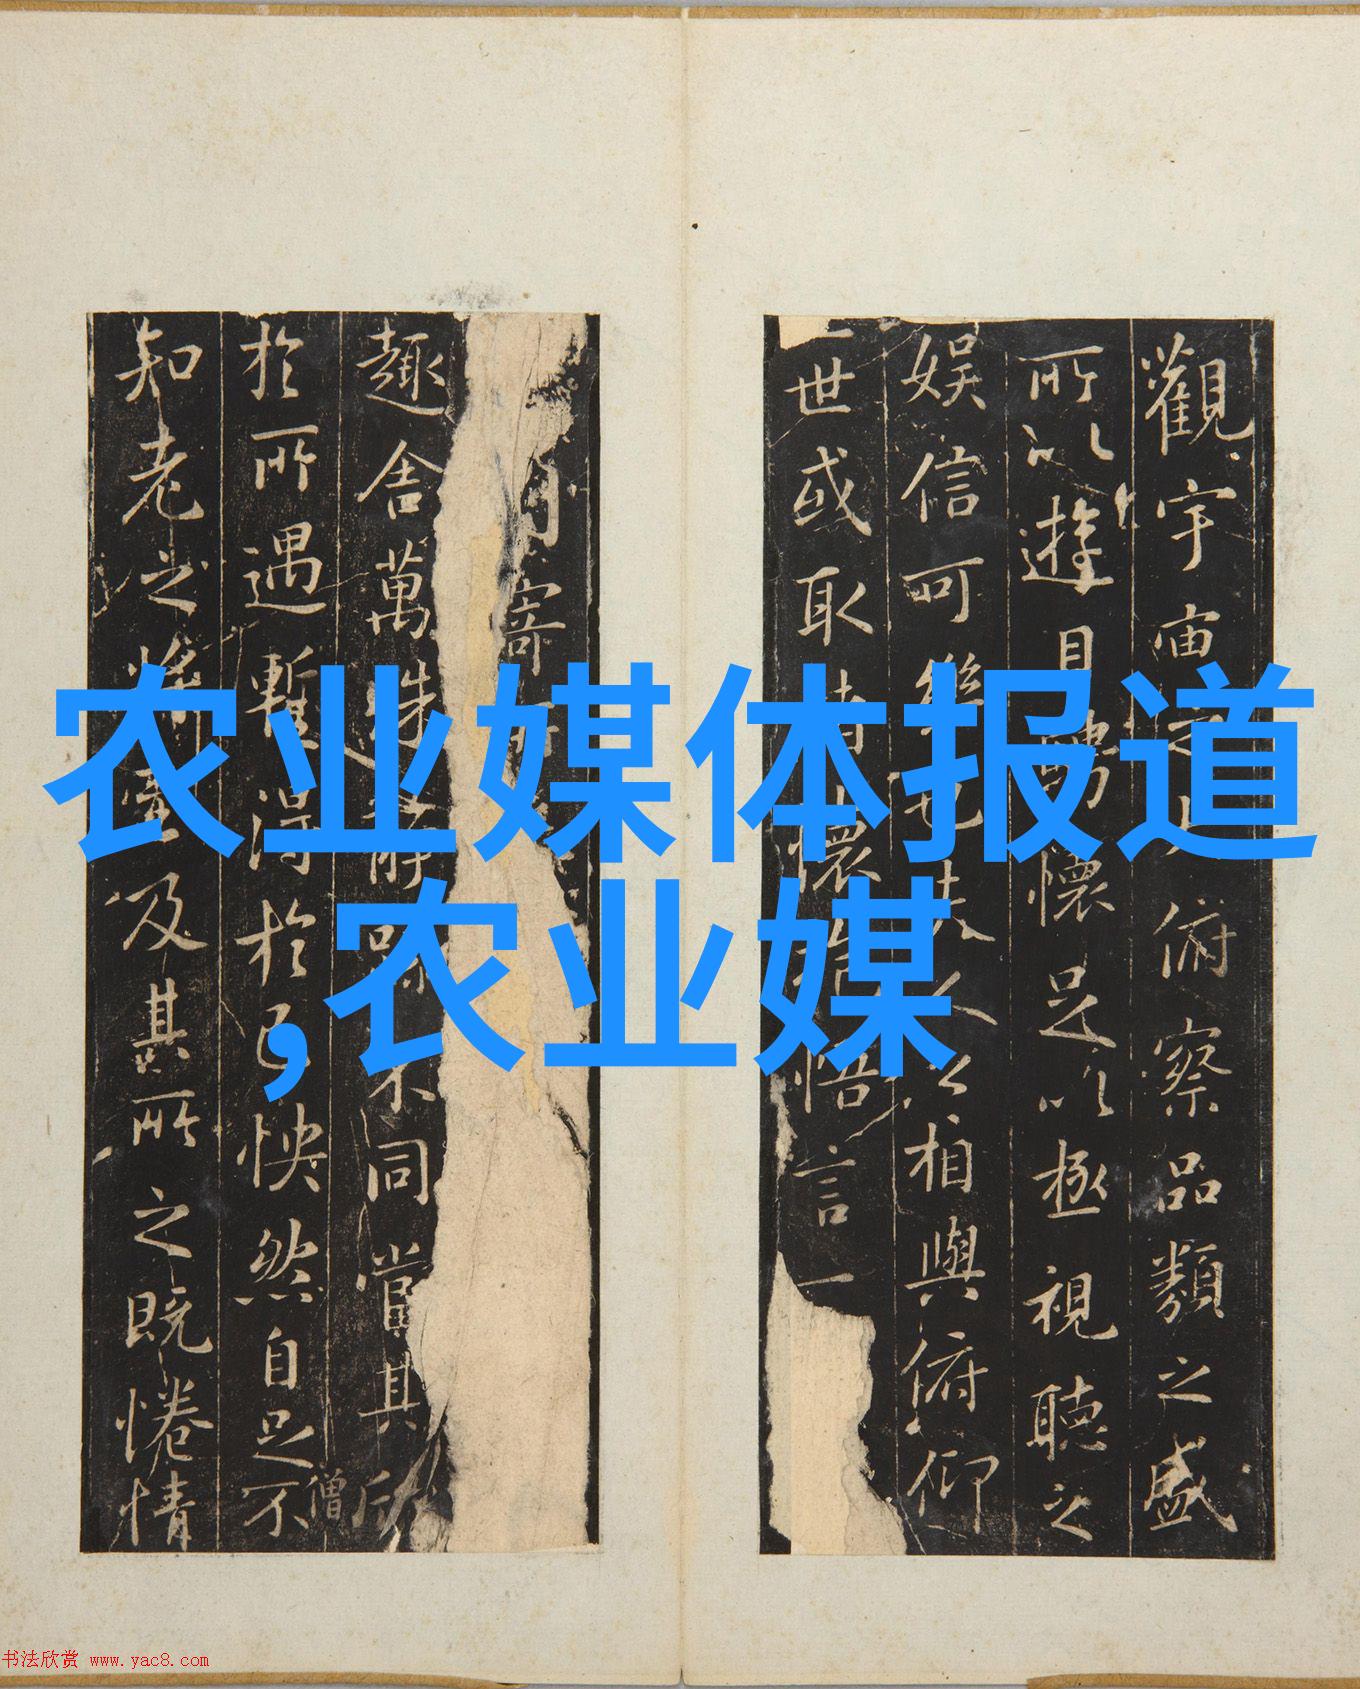 农业媒体报道
,农业媒
觀宇宙之大俯察品類之盛
所以遊目騁懷足以極視聽之
娱信可樂也夫人之相與俯仰
一世或取諸懷抱悟言一
内寄所
趣舍萬殊静躁不同當其欣
僧
於所遇暫得於己怏然自足不
知老之將至及其所之既惓情
书法欣赏 www.yac8.com